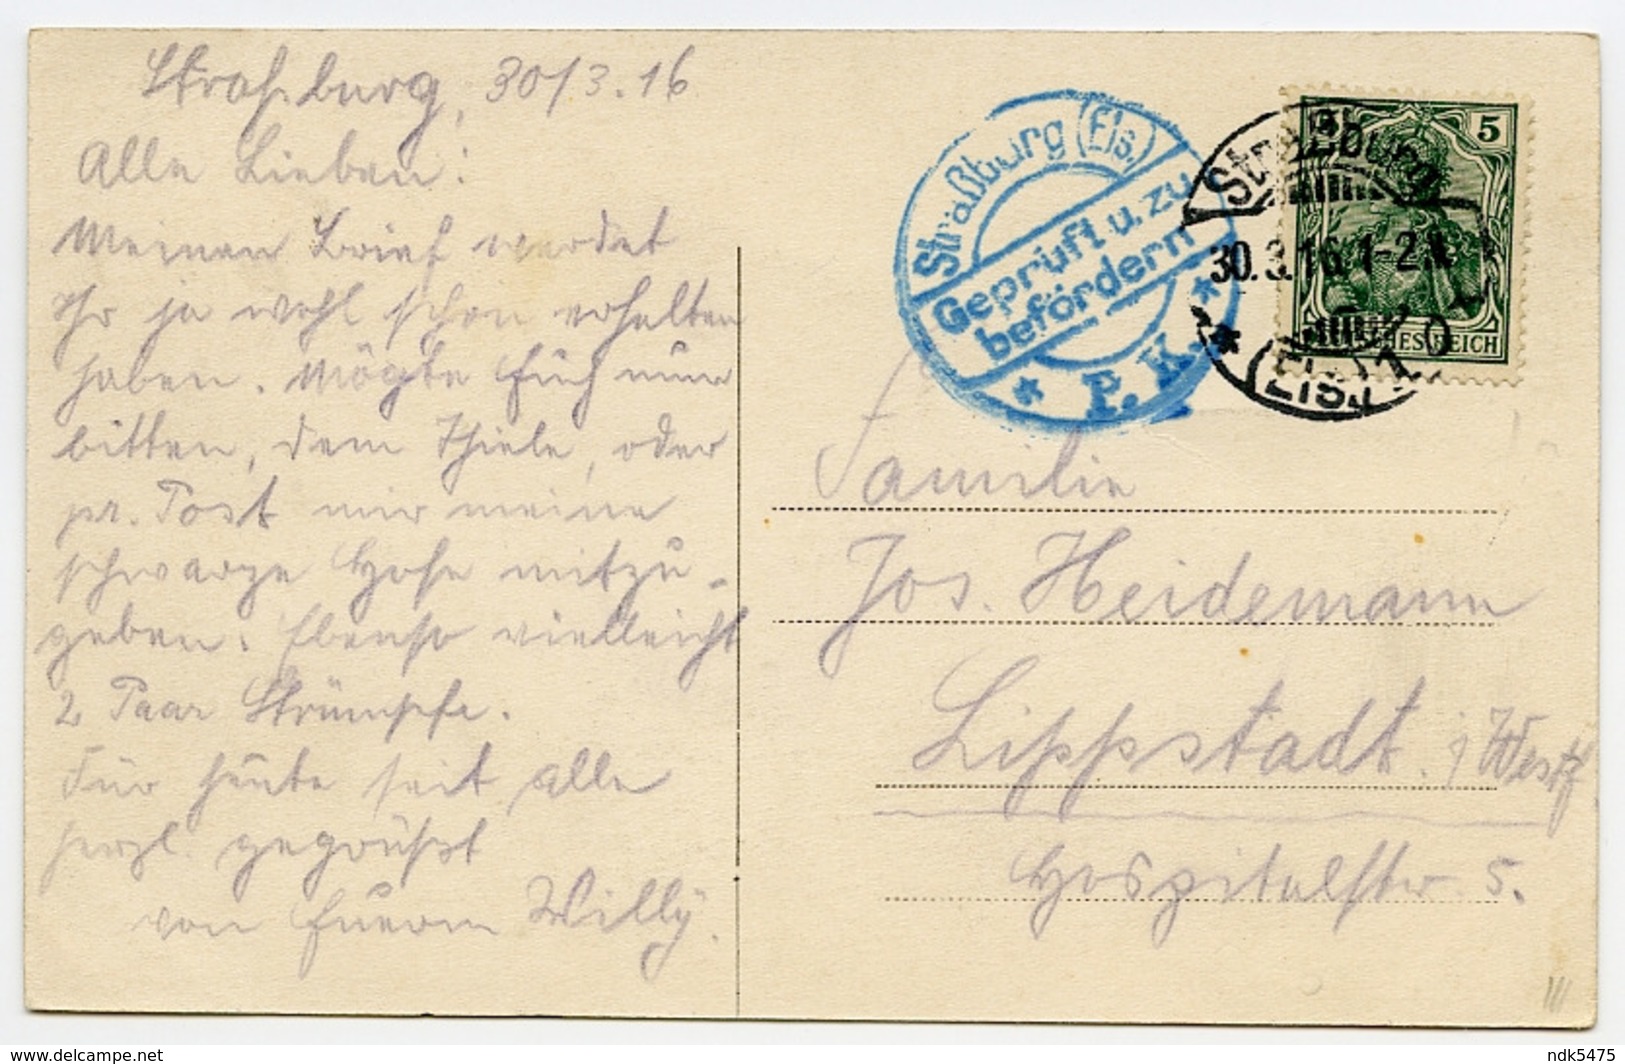 Straßburg, 30/3.16
Alle Lieben!
Meinen Brief werdet
Ihr ja wohl schon erhalten
haben. Möchte Euch nun
bitten, dem Thiele, oder
pr. Post mir meine
schwarze Hose mitzu-
geben. Ebenso vielleicht
2 Paar Strümpfe.
Für heute seit alle
herzl. gegrüßt
von Euerm Willy.
Straßburg (Els.)
Geprüft u. zu
befördern
* P. K. *
Straßburg
30.3.16. 1-2 N
* (Els.) 1 *
5
DEUTSCHES REICH
Familie
Jos. Heidemann
Lippstadt. i Westf
Hospitalstr. 5.
delcampe.net
ndk5475